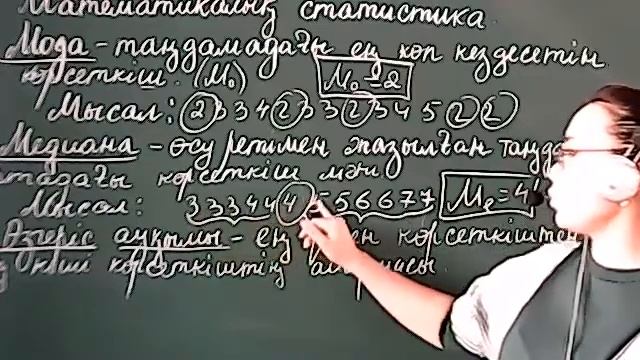 Математикалық статистика
Мода - таңдамадағы ең көп кездесетін
көрсеткіш. (Mo) Mo = 2
Мысал: 2 3 3 4 2 3 3 2 3 4 5 2 2
Медиана - өсу ретімен жазылған
көрсеткіш мәні
Мысал: 3 3 3 4 4 4 5 5 6 6 7 7 Me = 4
Өзгеріс ауқымы - ең көрсеткіштен
кіші көрсеткіштің